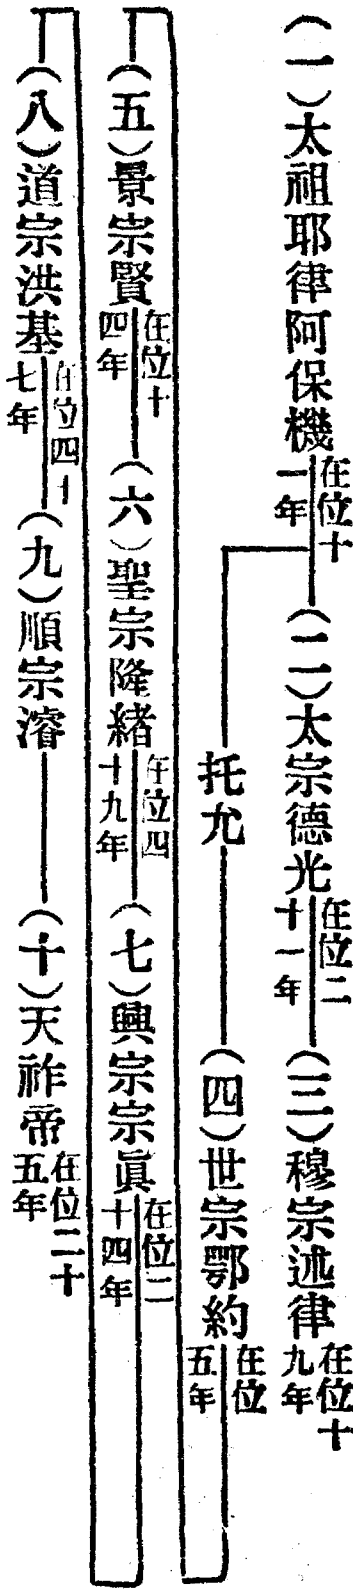 （一）太祖耶律阿保機 在位十一年
（二）太宗德光 在位二十一年
（三）穆宗述律 在位十九年
托允
（四）世宗鄂約 在位五年
（五）景宗賢 在位十四年
（六）聖宗隆緒 在位四十九年
（七）興宗宗眞 在位二十四年
（八）道宗洪基 在位四十七年
（九）順宗濬
（十）天祚帝 在位二十五年